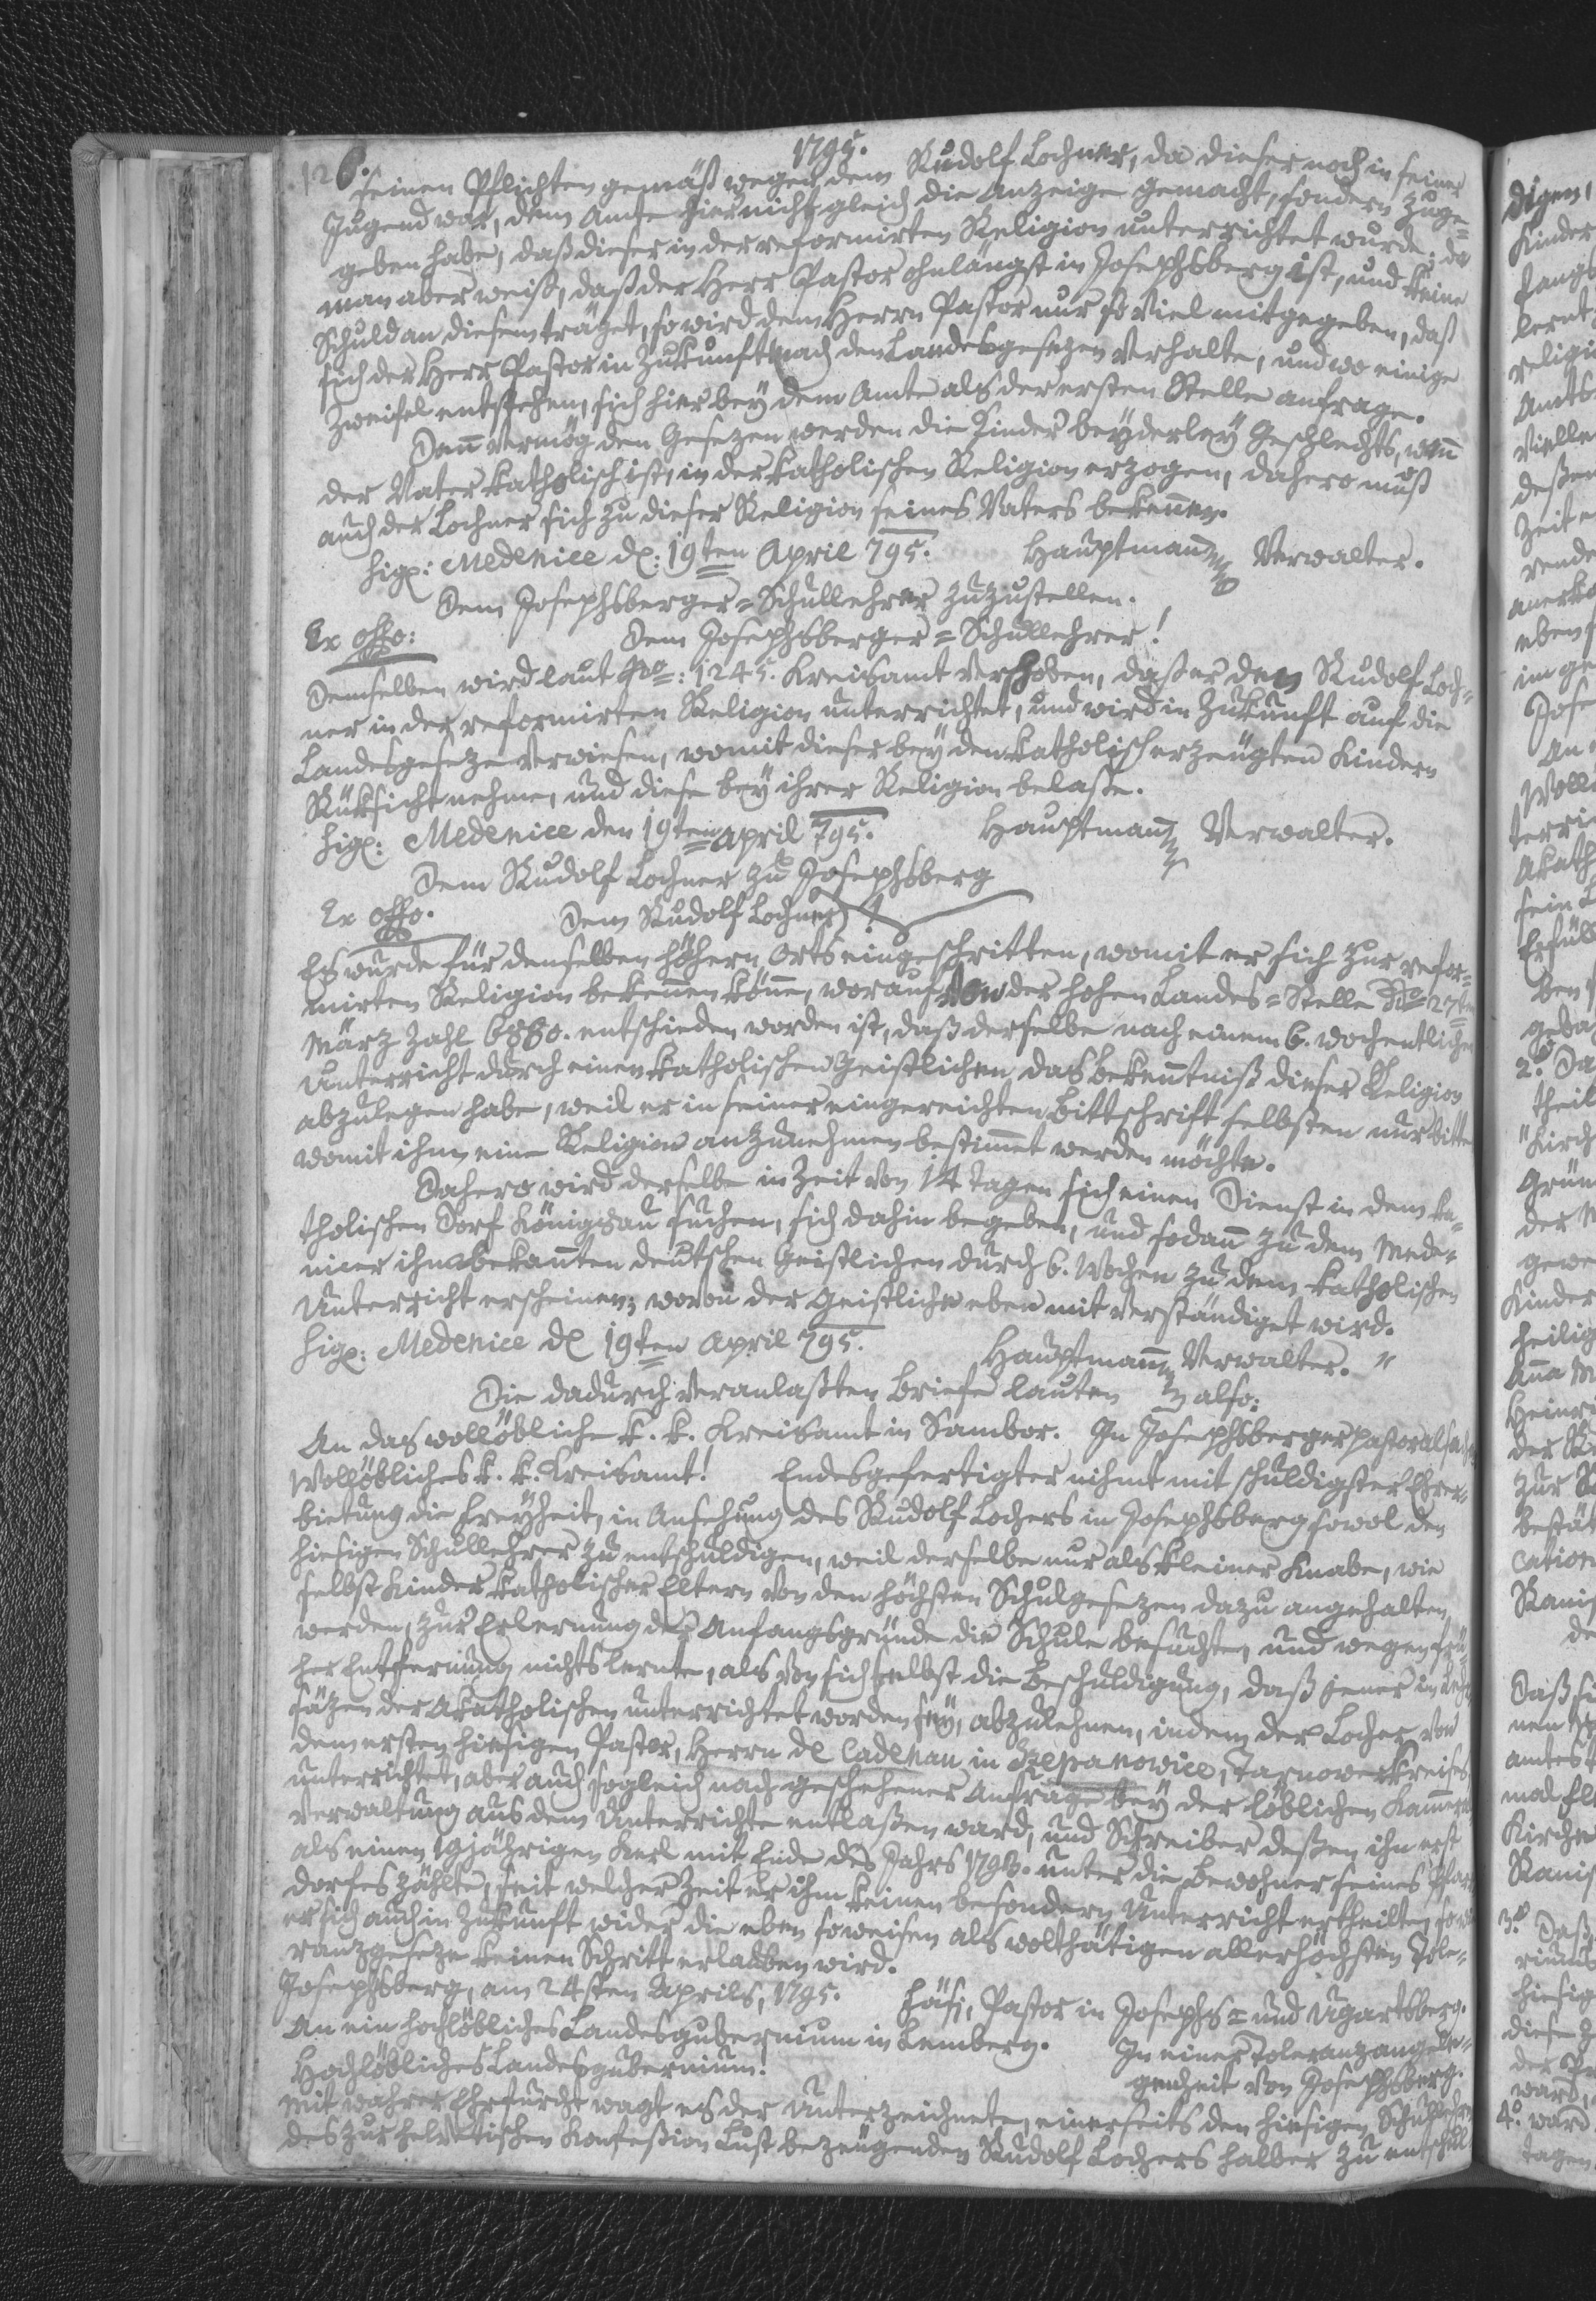 126. 1795.
seinen Pflichten gemäß wegen dem Rudolf Lochner, da dieser noch in seiner
Jugend war, dem Amte hier nicht gleich die Anzeige gemacht, sondern zuge=
geben habe, daß dieser in der reformirten Religion unterrichtet wurde; da
man aber weiß, daß der Herr Pastor ohnlängst in Josephsberg ist, und keine
Schuld an diesem träget, so wird dem Herrn Pastor nur so viel mitgegeben, daß
sich der Herr Pastor in Zukunft nach den Landesgesezen verhalte, und wo einige
Zweifel entstehen, sich hier bey dem Amte als der ersten Stelle anfrage.
Dann vermög den Gesezen werden die Kinder beyderley Geschlechts, wenn
der Vater katholisch ist, in der katholischen Religion erzogen, dahero muß
auch der Lochner sich zu dieser Religion seines Vaters bekennen.
Sig: Medenice d: 19ten April 795. Hauptmann Verwalter.
Dem Josephsberger=Schullehrer zuzustellen.
Ex offo: Dem Josephsberger=Schullehrer!
Demselben wird laut No: 1245. Kreisamt verhoben, daß er den Rudolf Loch=
ner in der reformirten Religion unterrichtet, und wird in Zukunft auf die
Landesgeseze verwiesen, womit dieser bey den katholisch erzeugten Kindern
Rüksicht nehme, und diese bey ihrer Religion belasse.
Sig: Medenice den 19ten April 795. Hauptmann Verwalter.
Dem Rudolf Lochner zu Josephsberg
Ex offo. Dem Rudolf Lochner!
Es wurde für denselben höhern Orts eingeschritten, womit er sich zur refor=
mirten Religion bekennen könne, worauf von der hohen Landes=Stelle dto 27ten
März Zahl 6880. entschieden worden ist, daß derselbe nach einem 6. wochentlichen
Unterricht durch einen katholischen Geistlichen das Bekenntniß dieser Religion
abzulegen habe, weil er in seiner eingereichten Bittschrift selbsten nur bitte
womit ihm eine Religion anzunehmen bestimmt werden möchte.
Dahero wird derselbe in Zeit von 14 Tagen sich einen Dienst in dem ka=
tholischen Dorf Königsau suchen, sich dahin begeben, und sodann zu dem Mede=
nicer ihm bekannten deutschen Geistlichen durch 6. Wochen zu dem katholischen
Unterricht erscheinen; wovon der Geistliche eben mit verständiget wird.
Sig: Medenice d 19ten April 795. Hauptmann Verwalter. "
Die dadurch veranlaßten Briefe lauten also:
An das wollöbliche k. k. Kreisamt in Sambor. In Josephsberger pastoralsachen
Wollöbliches k. k. Kreisamt! Endesgefertigter nihmt mit schuldigster Ehrer=
bietung die Freyheit, in Ansehung des Rudolf Lochers in Josephsberg sowol den
hiesigen Schullehrer zu entschuldigen, weil derselbe nur als kleiner Knabe, wie
selbst Kinder katholischer Eltern von den höchsten Schulgesezen dazu angehalten
werden, zur Erlernung der Anfangsgründe die Schule besuchte, und wegen frü=
her Entfernung nichts lernte, als von sich selbst die Beschuldigung, daß jener in Lehr
säzen der Akatholischen unterrichtet worden sey, abzulehnen, indem der Locher von
dem ersten hiesigen Pastor, Herrn de Cadenau in Szepanowice, Tarnower Kreises
unterrichtet, aber auch sogleich nach geschehener Anfrage bey der löblichen Kammeral
Verwaltung aus dem Unterrichte entlaßen ward, und Schreiber deßen ihn erst
als einen 19jährigen Kerl mit Ende des Jahrs 1793. unter die Bewohner seines Pfarr
dorfes zählte, seit welcher Zeit er ihm keinen besondern Unterricht ertheilte, so wie
er sich auch in Zukunft wider die eben so weisen als wolthätigen allerhöchsten Tole=
ranzgeseze keinen Schritt erlauben wird.
Josephsberg, am 24sten Aprils, 1795. Häfi, Pastor in Josephs= und Ugartsberg.
An ein hochlöbliches Landesgubernium in Lemberg. In einer Toleranzangele=
Hochlöbliches Landesgubernium! genheit von Josephsberg.
Mit wahrer Ehrfurcht wagt es der Unterzeichnete, einerseits den hiesigen Schullehrer
des zur helvetischen Konfeßion Lust bezeugenden Rudolf Lochers halber zu entschul